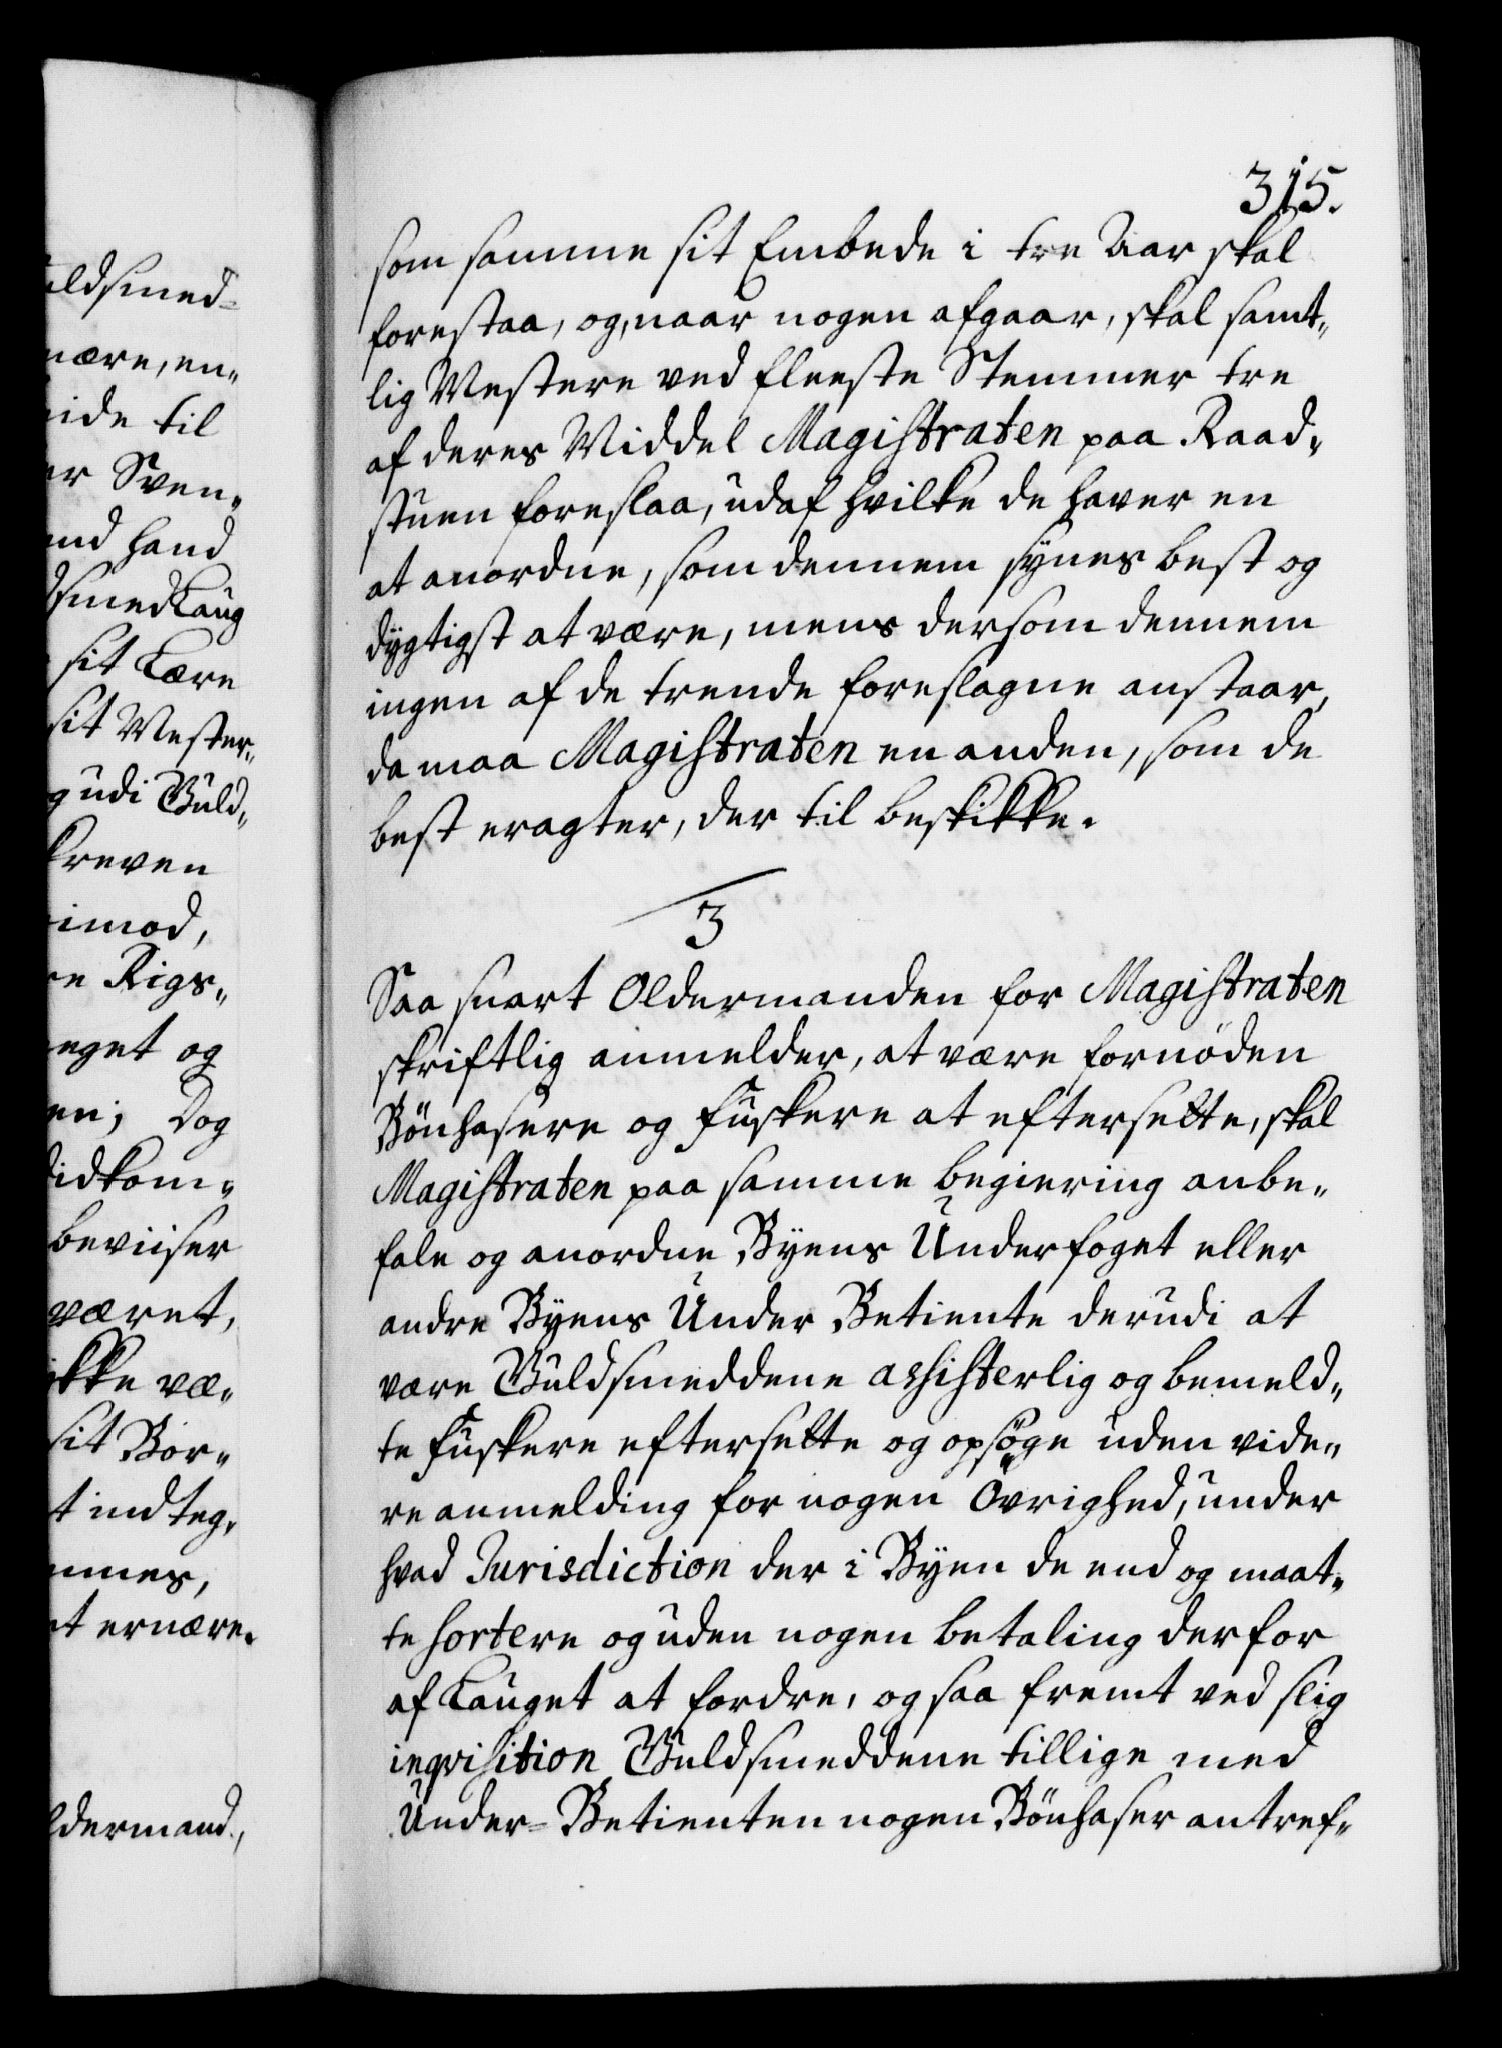 uldsmed-
nære, en„
eide til
er Sven„
end hand
dsmedLaug
sit Lære
sit Mester„
g udi Guld„
kreven
imod,
re Rigs„
eget og
en; Dog
didkom„
beviiser
været,
ikke væ„
sit Bor„
t indteg„
mmes,
et ernære.
ldermand,
315.
som samme sit Embede i tre Aar skal
forestaa, og, naar nogen afgaar, skal samt„
lig Mestere ved fleeste Stemmer tre
af deres Middel Magistraten paa Raad„
stuen foreslaa, udaf hvilke de haver en
at anordne, som dennem synes best og
dygtigst at være, mens dersom dennem
ingen af de trende foreslagne anstaar,
da maa Magistraten en anden, som de
best eragter, der til beskikke.
3
Saa snart Oldermanden for Magistraten
skriftlig anmelder, at være fornöden
Bönhasere og Fuskere at eftersette, skal
Magistraten paa samme begiering anbe„
fale og anordne Byens Underfoget eller
andre Byens Under Betiente derudi at
være Guldsmeddene assisterlig og bemeld„
te Fuskere eftersette og opsöge uden vide„
re anmelding for nogen Övrighed, under
hvad Jurisdiction der i Byen de end og maat„
te sortere og uden nogen betaling derfor
af Lauget at fordre, og saa fremt ved slig
inqvisition Guldsmeddene tillige med
Under-Betienten nogen Bönhaser antref„